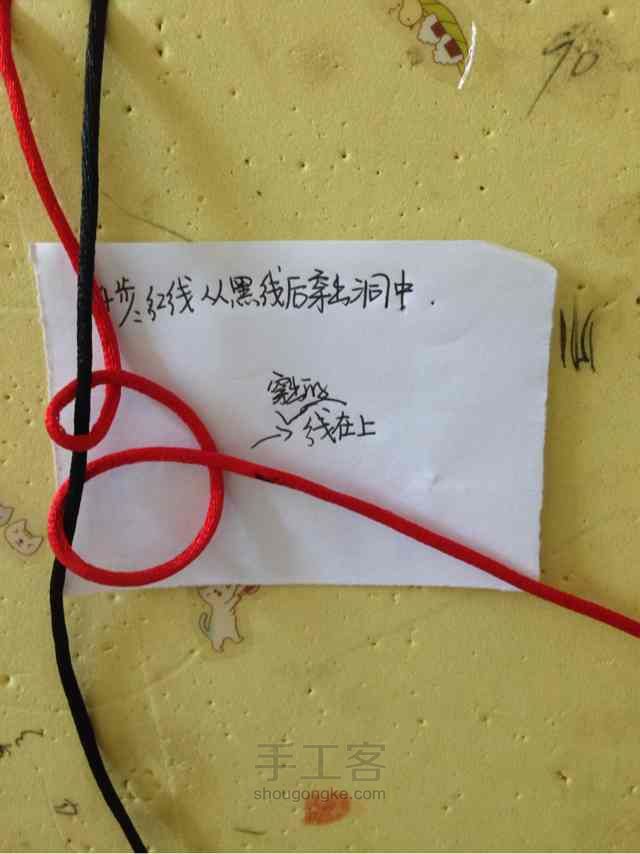 步:红线从黑线后穿出洞中.
穿出的
→线在上
90
手工客
shougongke.com